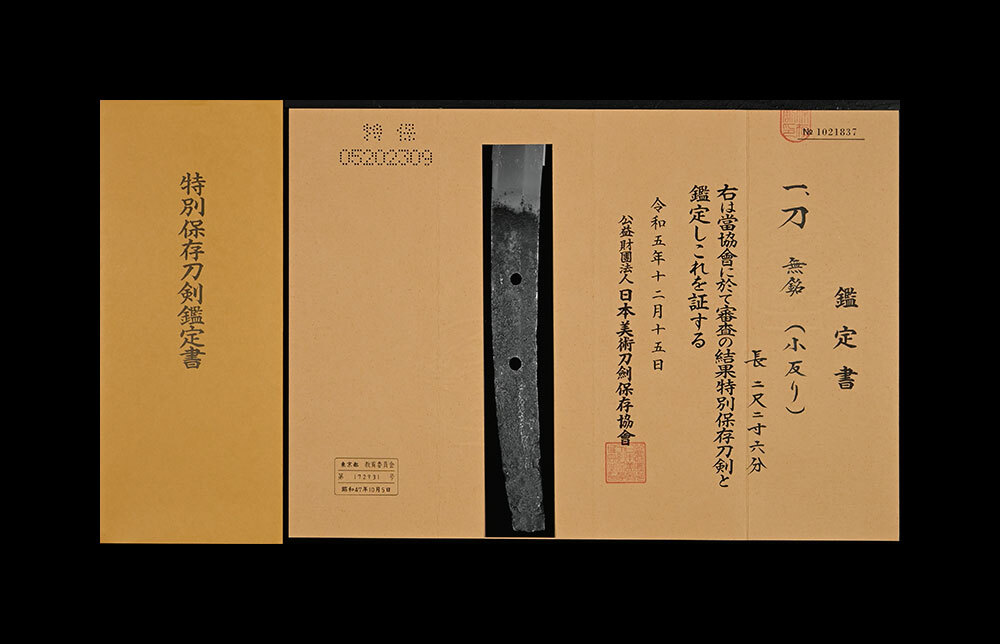 鑑定書
№ 1021837
一、刀 無銘 (小反り)
長 二尺二寸六分
右は當協會に於て審査の結果特別保存刀剣と
鑑定しこれを証する
令和五年十二月十五日
公益財團法人 日本美術刀劍保存協會
特保
05202309
東京都 教育委員会
第 172931 号
昭和47年10月5日
特別保存刀剣鑑定書